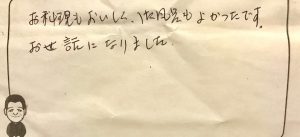 お料理もおいしく、お風呂もよかったです。
お世話になりました。